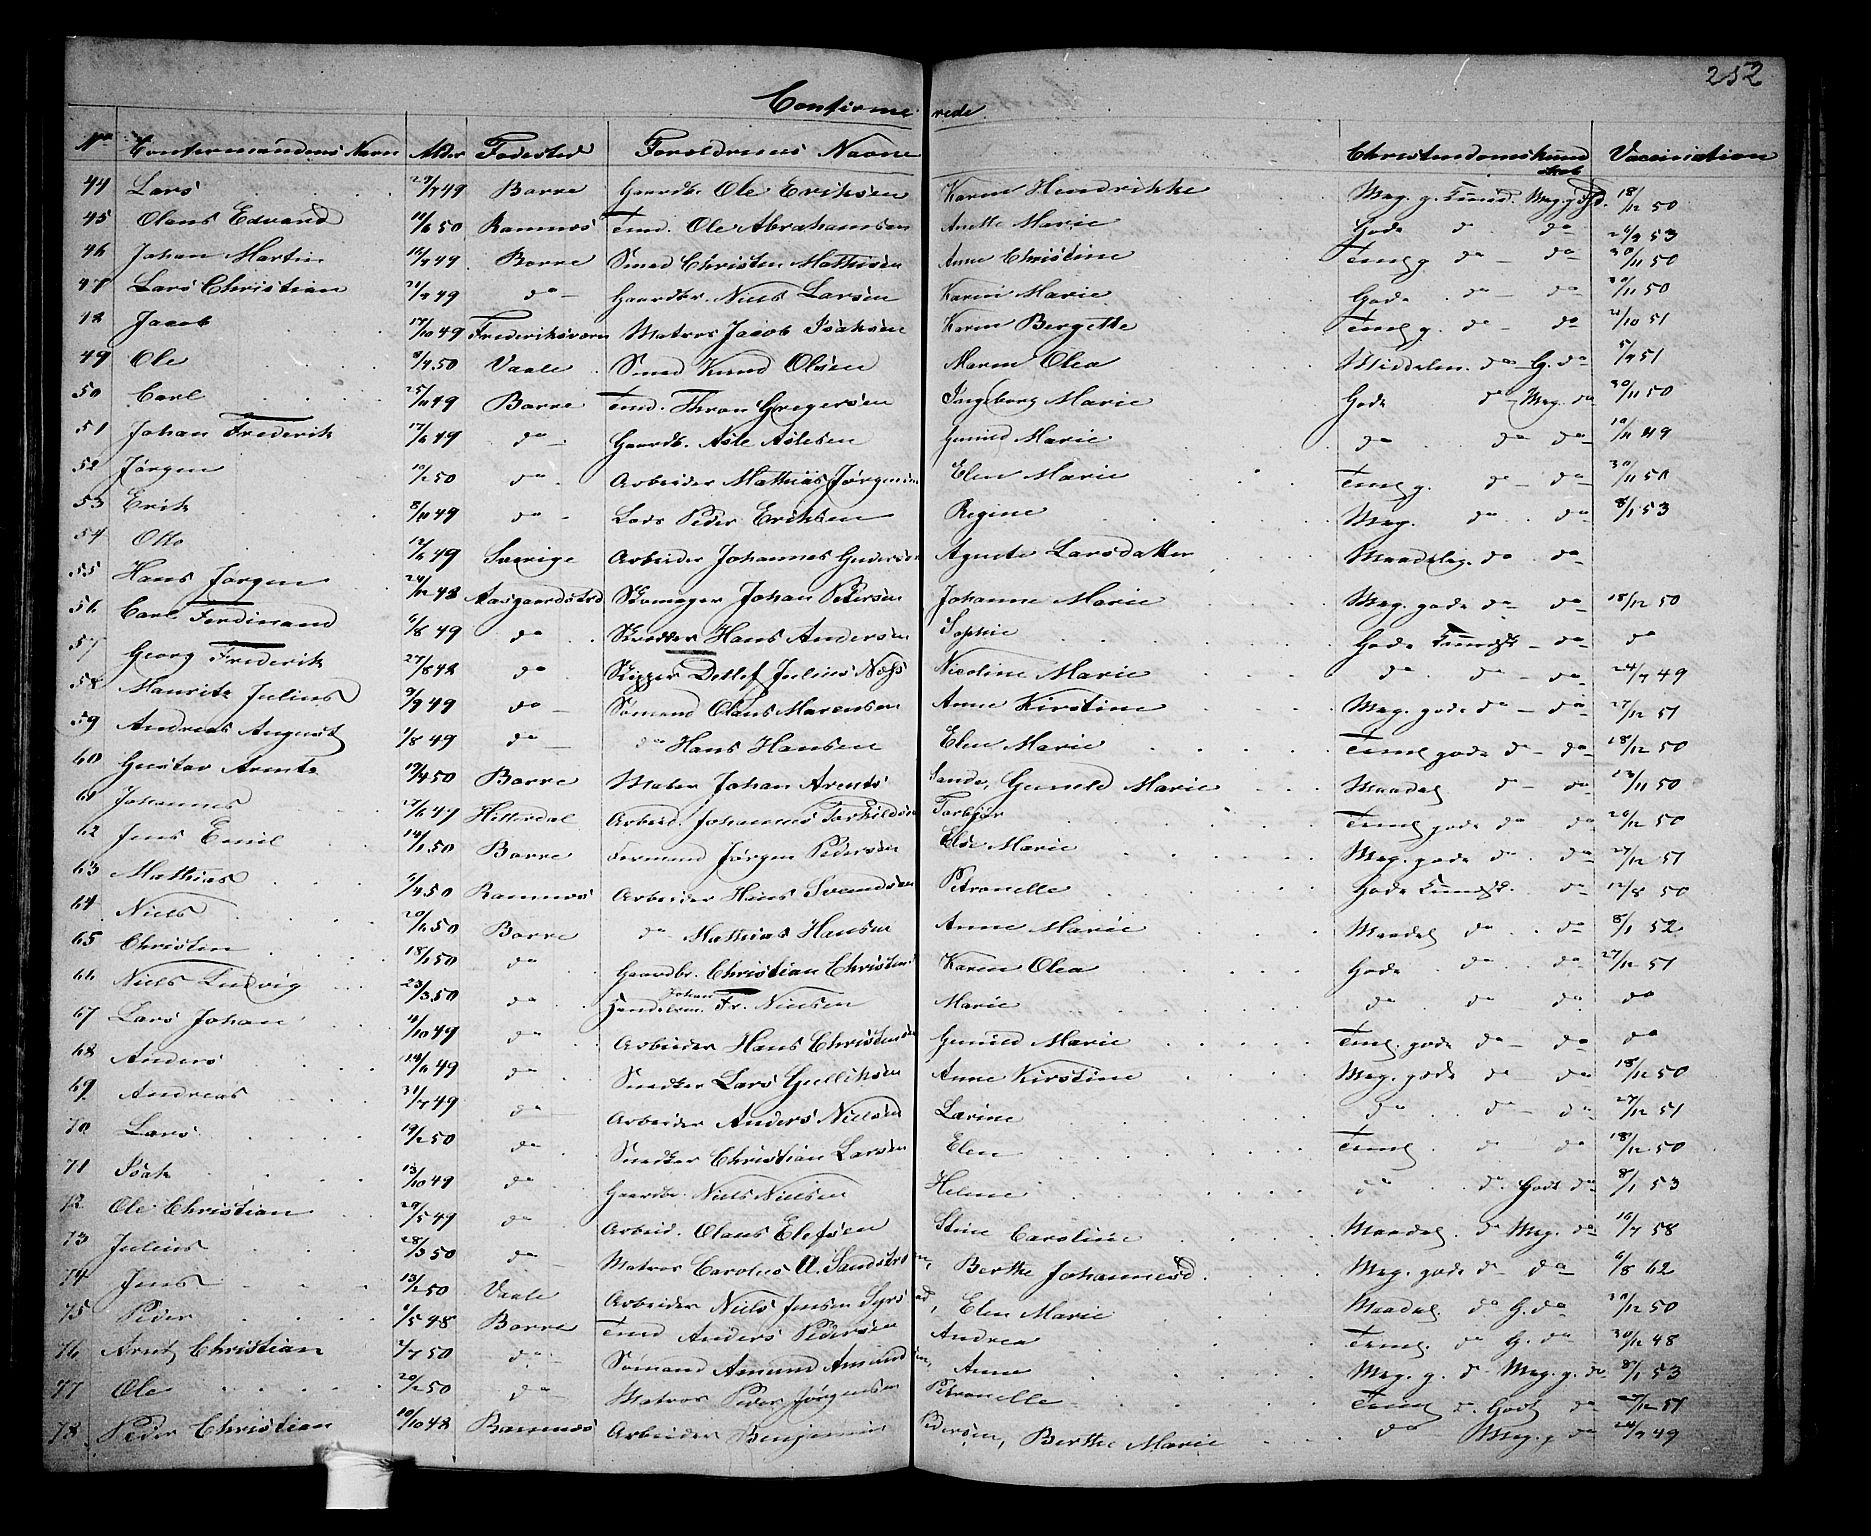 252
Confirmerede
No Confirmandens Navn Alder Fødested Foreldrenes Navne Christendomskundskab Vaccination
44 Lars 27/7 49 Borre Gaardbr. Ole Eriksen Karen Hendrikke Meg. g. Kund. Meg. g. Fld. 18/12 50
45 Olaus Edvard 14/6 50 Ramnes Tmd. Ole Abrahamsen Anette Marie Gode do do 26/9 53
46 Johan Martin 14/7 49 Borre Smed Christen Mathisen Anne Christine Teml. g. do do 30/11 50
47 Lars Christian 21/9 49 do Gaardbr. Niels Larsen Karen Marie Gode do do 30/11 50
48 Jacob 17/10 49 Frederiksværn Matros Jacob Isaksen Karen Bergette Teml. g. do do 21/10 51
49 Ole 9/4 50 Vaale Smed Knud Olsen Maren Olea Middelm. do G. do 5/9 51
50 Carl 25/11 49 Borre Tmd. Thron Gregersen Ingeborg Marie Gode do Meg. do 30/11 50
51 Johan Frederik 17/6 49 do Gaardb. Asle Aslesen Gunild Marie do do do 10/11 49
52 Jørgen 10/2 50 do Arbeider Mathias Jørgensen Elen Marie Teml g. do do 30/11 50
53 Erik 8/11 49 do Lods Peder Eriksen Regine Meg. do do 8/1 53
54 Otto 12/6 49 Sverige Arbeider Johannes Gudersen Agnete Larsdatter Maadelig. do do
55 Hans Jørgen 24/12 48 Aasgaardstrd Skomager Johan Petersen Johanne Marie Meg. gode do do 18/12 50
56 Carl Ferdinand 6/8 49 do Snedker Hans Andersen Sophie Gode Kundsk. do do
57 Georg Frederik 27/8 48 do Skipper Detlef Julius Nees Nicoline Marie do do do 24/7 49
58 Mauritz Julius 9/9 49 do Sømand Olaus Marensen Anne Kirstine Meg. gode do do 27/12 51
59 Andreas August 1/8 49 do do Hans Hansen Elen Marie Teml gode do do 18/12 50
60 Gustav Arentz 19/4 50 Borre Maler Johan Arents Sande, Gunild Marie Maadel do do 23/11 50
61 Johannes 17/6 47 Hitterdal Arbeid. Johannes Torkildsen Torbjør Teml gode do do 20/12 50
62 Jens Emil 14/1 50 Borre Formand Jørgen Pedersen Else Marie Meg. gode do do 27/12 51
63 Mathias 6/4 50 Ramnes Arbeider Hans Svendsen Petronelle Gode Kundsk. do 12/8 50
64 Niels 20/6 50 Borre do Mathias Hansen Anne Marie Maadel do do 8/1 52
65 Christen 18/2 50 do Gaardbr. Christian Christens Karen Olea Gode do do 27/12 51
66 Niels Ludvig 23/3 50 do Handelsm. Johan Fr. Nielsen Marie do do do do
67 Lars Johan 11/10 49 do Arbeider Hans Christensen Gunild Marie Teml. gode do do do
68 Anders 14/9 49 do Snedker Lars Gulliksen Anne Kirstine Meg. gode do do 18/12 50
69 Andreas 31/7 49 do Arbeider Anders Nielsen Larine do do do 27/12 51
70 Lars 19/2 50 do Snedker Christian Larsen Elen Teml. do do 18/12 50
71 Isak 13/10 49 do Gaardbr. Niels Nielsen Helene do do Godt do 8/1 53
72 Ole Christian 29/5 49 do Arbeid. Olaus Elefsen Stine Caroline Maadel. do Meg. do 16/7 58
73 Julius 28/3 50 do Matros Carolus A. Sandstrøm, Berthe Johannesd. Meg. gode do do 6/8 62
74 Jens 13/2 50 Vaale Arbeider Niels Jensen Elen Marie Maadel do G. do 20/12 50
75 Peder 6/5 48 Borre Tmd Anders Pedersen Andrea Teml. do G. do 30/12 48
76 Arnt Christian 2/7 50 do Sømand Amund Amundsen, Anne Meg. g. do Meg. g. do 8/1 53
77 Ole 20/2 50 do Matros Peder Jørgensen Petronelle Teml do Godt do 27/12 51
78 Peder Christian 10/10 48 Ramnes Arbeider Benjamin Pedersen, Berthe Marie do Meg. g do 24/7 49